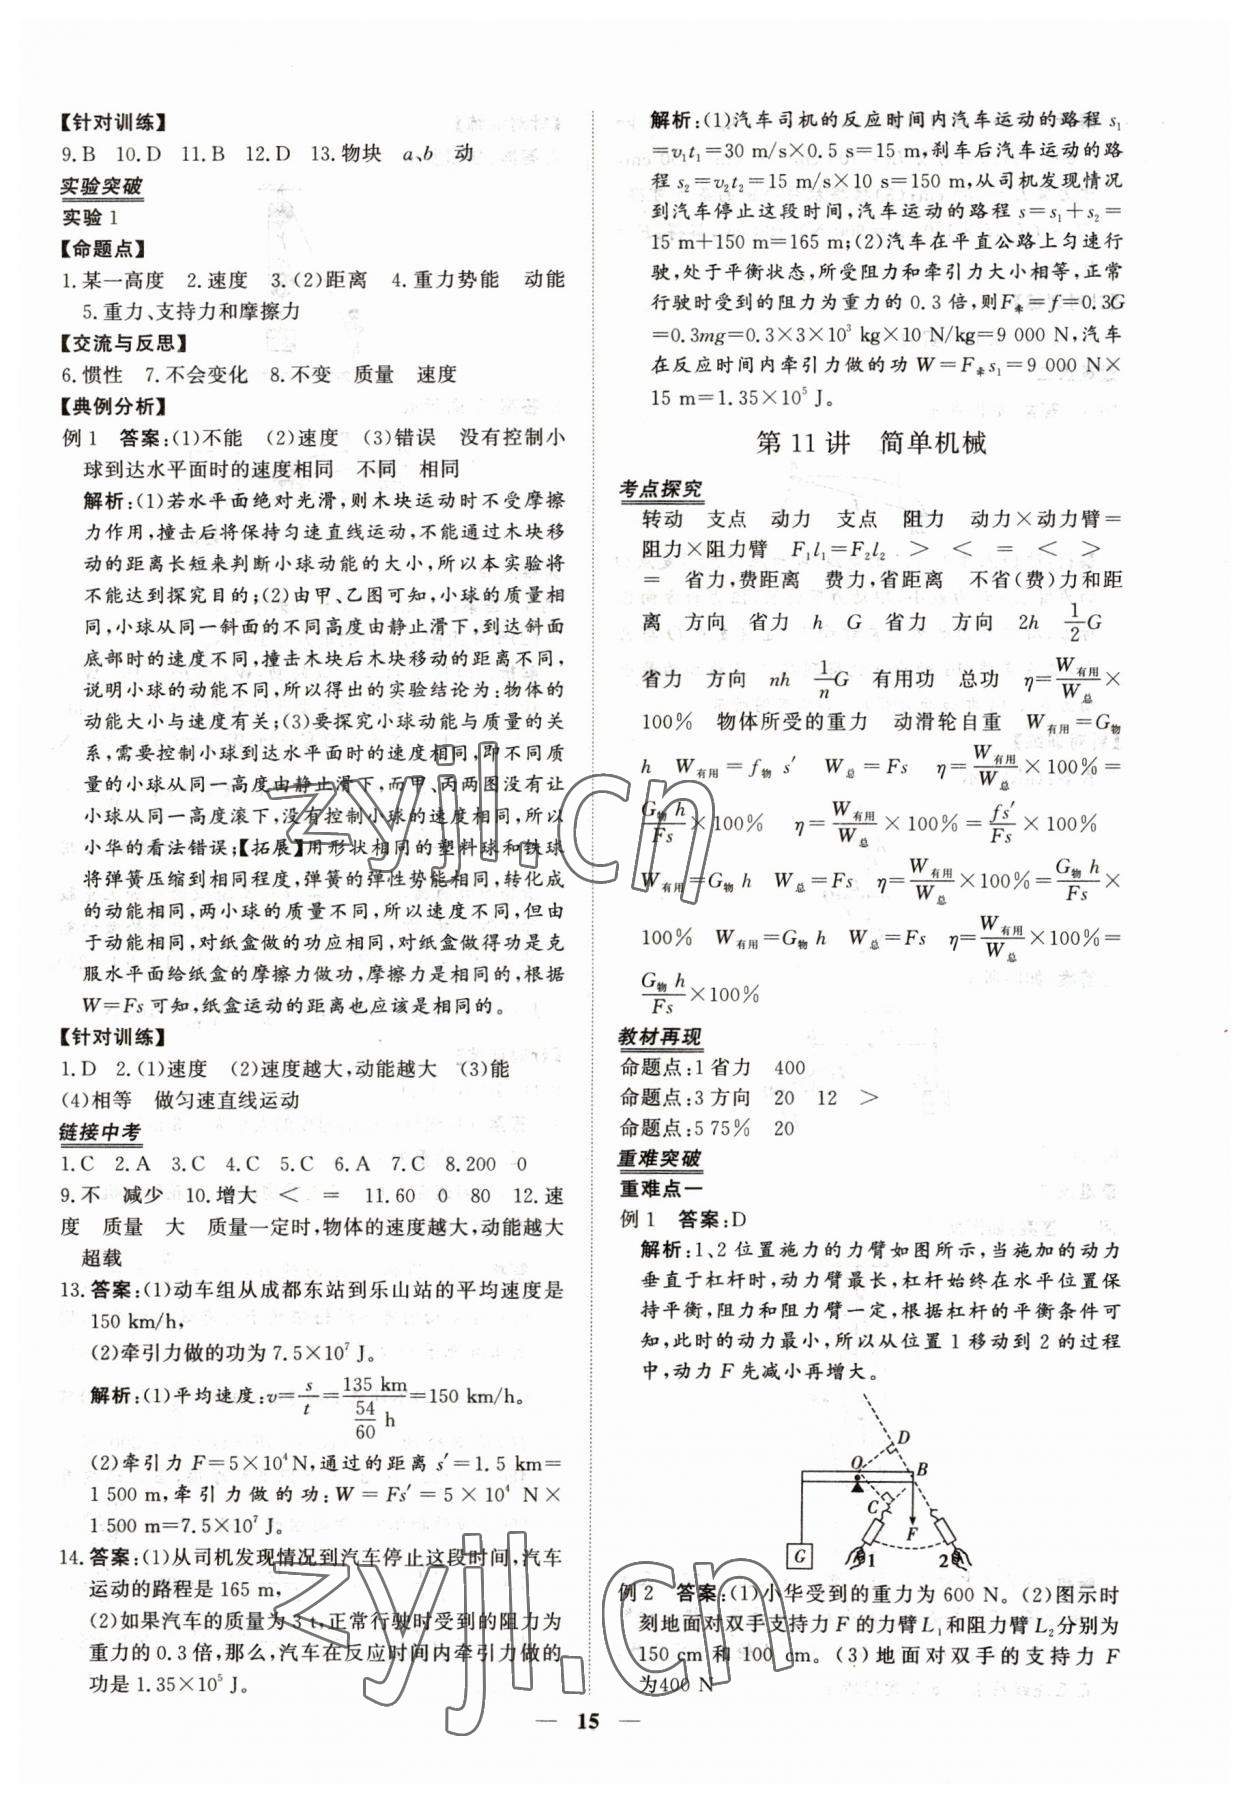 【针对训练】
9.B 10.D 11.B 12.D 13.物块 a、b 动
实验突破
实验 1
【命题点】
1.某一高度 2.速度 3.(2)距离 4.重力势能 动能
5.重力、支持力和摩擦力
【交流与反思】
6.惯性 7.不会变化 8.不变 质量 速度
【典例分析】
例 1 答案:(1)不能 (2)速度 (3)错误 没有控制小
球到达水平面时的速度相同 不同 相同
解析:(1)若水平面绝对光滑,则木块运动时不受摩擦
力作用,撞击后将保持匀速直线运动,不能通过木块移
动的距离长短来判断小球动能的大小,所以本实验将
不能达到探究目的;(2)由甲、乙图可知,小球的质量相
同,小球从同一斜面的不同高度由静止滑下,到达斜面
底部时的速度不同,撞击木块后木块移动的距离不同,
说明小球的动能不同,所以得出的实验结论为:物体的
动能大小与速度有关;(3)要探究小球动能与质量的关
系,需要控制小球到达水平面时的速度相同,即不同质
量的小球从同一高度由静止滑下,而甲、丙两图没有让
小球从同一高度滚下,没有控制小球的速度相同,所以
小华的看法错误;【拓展】用形状相同的塑料球和铁球
将弹簧压缩到相同程度,弹簧的弹性势能相同,转化成
的动能相同,两小球的质量不同,所以速度不同,但由
于动能相同,对纸盒做的功应相同,对纸盒做得功是克
服水平面给纸盒的摩擦力做功,摩擦力是相同的,根据
W=Fs 可知,纸盒运动的距离也应该是相同的。
【针对训练】
1.D 2.(1)速度 (2)速度越大,动能越大 (3)能
(4)相等 做匀速直线运动
链接中考
1.C 2.A 3.C 4.C 5.C 6.A 7.C 8.200 0
9.不 减少 10.增大 < = 11.60 0 80 12.速
度 质量 大 质量一定时,物体的速度越大,动能越大
超载
13.答案:(1)动车组从成都东站到乐山站的平均速度是
150 km/h,
(2)牵引力做的功为 7.5×10⁷ J。
解析:(1)平均速度:v=s/t=135 km/(54/60 h)=150 km/h。
(2)牵引力 F=5×10⁴ N,通过的距离 s′=1.5 km=
1 500 m,牵引力做的功:W=Fs′=5×10⁴ N×
1 500 m=7.5×10⁷ J。
14.答案:(1)从司机发现情况到汽车停止这段时间,汽车
运动的路程是 165 m,
(2)如果汽车的质量为 3 t,正常行驶时受到的阻力为
重力的 0.3 倍,那么,汽车在反应时间内牵引力做的
功是 1.35×10⁵ J。
解析:(1)汽车司机的反应时间内汽车运动的路程 s₁
=v₁t₁=30 m/s×0.5 s=15 m,刹车后汽车运动的路
程 s₂=v₂t₂=15 m/s×10 s=150 m,从司机发现情况
到汽车停止这段时间,汽车运动的路程 s=s₁+s₂=
15 m+150 m=165 m;(2)汽车在平直公路上匀速行
驶,处于平衡状态,所受阻力和牵引力大小相等,正常
行驶时受到的阻力为重力的 0.3 倍,则 F牵=f=0.3G
=0.3mg=0.3×3×10³ kg×10 N/kg=9 000 N,汽车
在反应时间内牵引力做的功 W=F牵s₁=9 000 N×
15 m=1.35×10⁵ J。
第 11 讲 简单机械
考点探究
转动 支点 动力 支点 阻力 动力×动力臂=
阻力×阻力臂 F₁l₁=F₂l₂ > < = < >
= 省力,费距离 费力,省距离 不省(费)力和距
离 方向 省力 h G 省力 方向 2h 1/2 G
省力 方向 nh 1/n G 有用功 总功 η=W有用/W总×
100% 物体所受的重力 动滑轮自重 W有用=G物
h W有用=f物 s′ W总=Fs η=W有用/W总×100%=
G物 h/Fs×100% η=W有用/W总×100%=fs′/Fs×100%
W有用=G物 h W总=Fs η=W有用/W总×100%=G物 h/Fs×
100% W有用=G物 h W总=Fs η=W有用/W总×100%=
G物 h/Fs×100%
教材再现
命题点:1 省力 400
命题点:3 方向 20 12 >
命题点:5 75% 20
重难突破
重难点一
例 1 答案:D
解析:1、2 位置施力的力臂如图所示,当施加的动力
垂直于杠杆时,动力臂最长,杠杆始终在水平位置保
持平衡,阻力和阻力臂一定,根据杠杆的平衡条件可
知,此时的动力最小,所以从位置 1 移动到 2 的过程
中,动力 F 先减小再增大。
D
O
B
C
F
G
1
2
例 2 答案:(1)小华受到的重力为 600 N。(2)图示时
刻地面对双手支持力 F 的力臂 L₁和阻力臂 L₂分别为
150 cm 和 100 cm。(3)地面对双手的支持力 F
为400 N
15
zyjl.cn
zyjl.cn